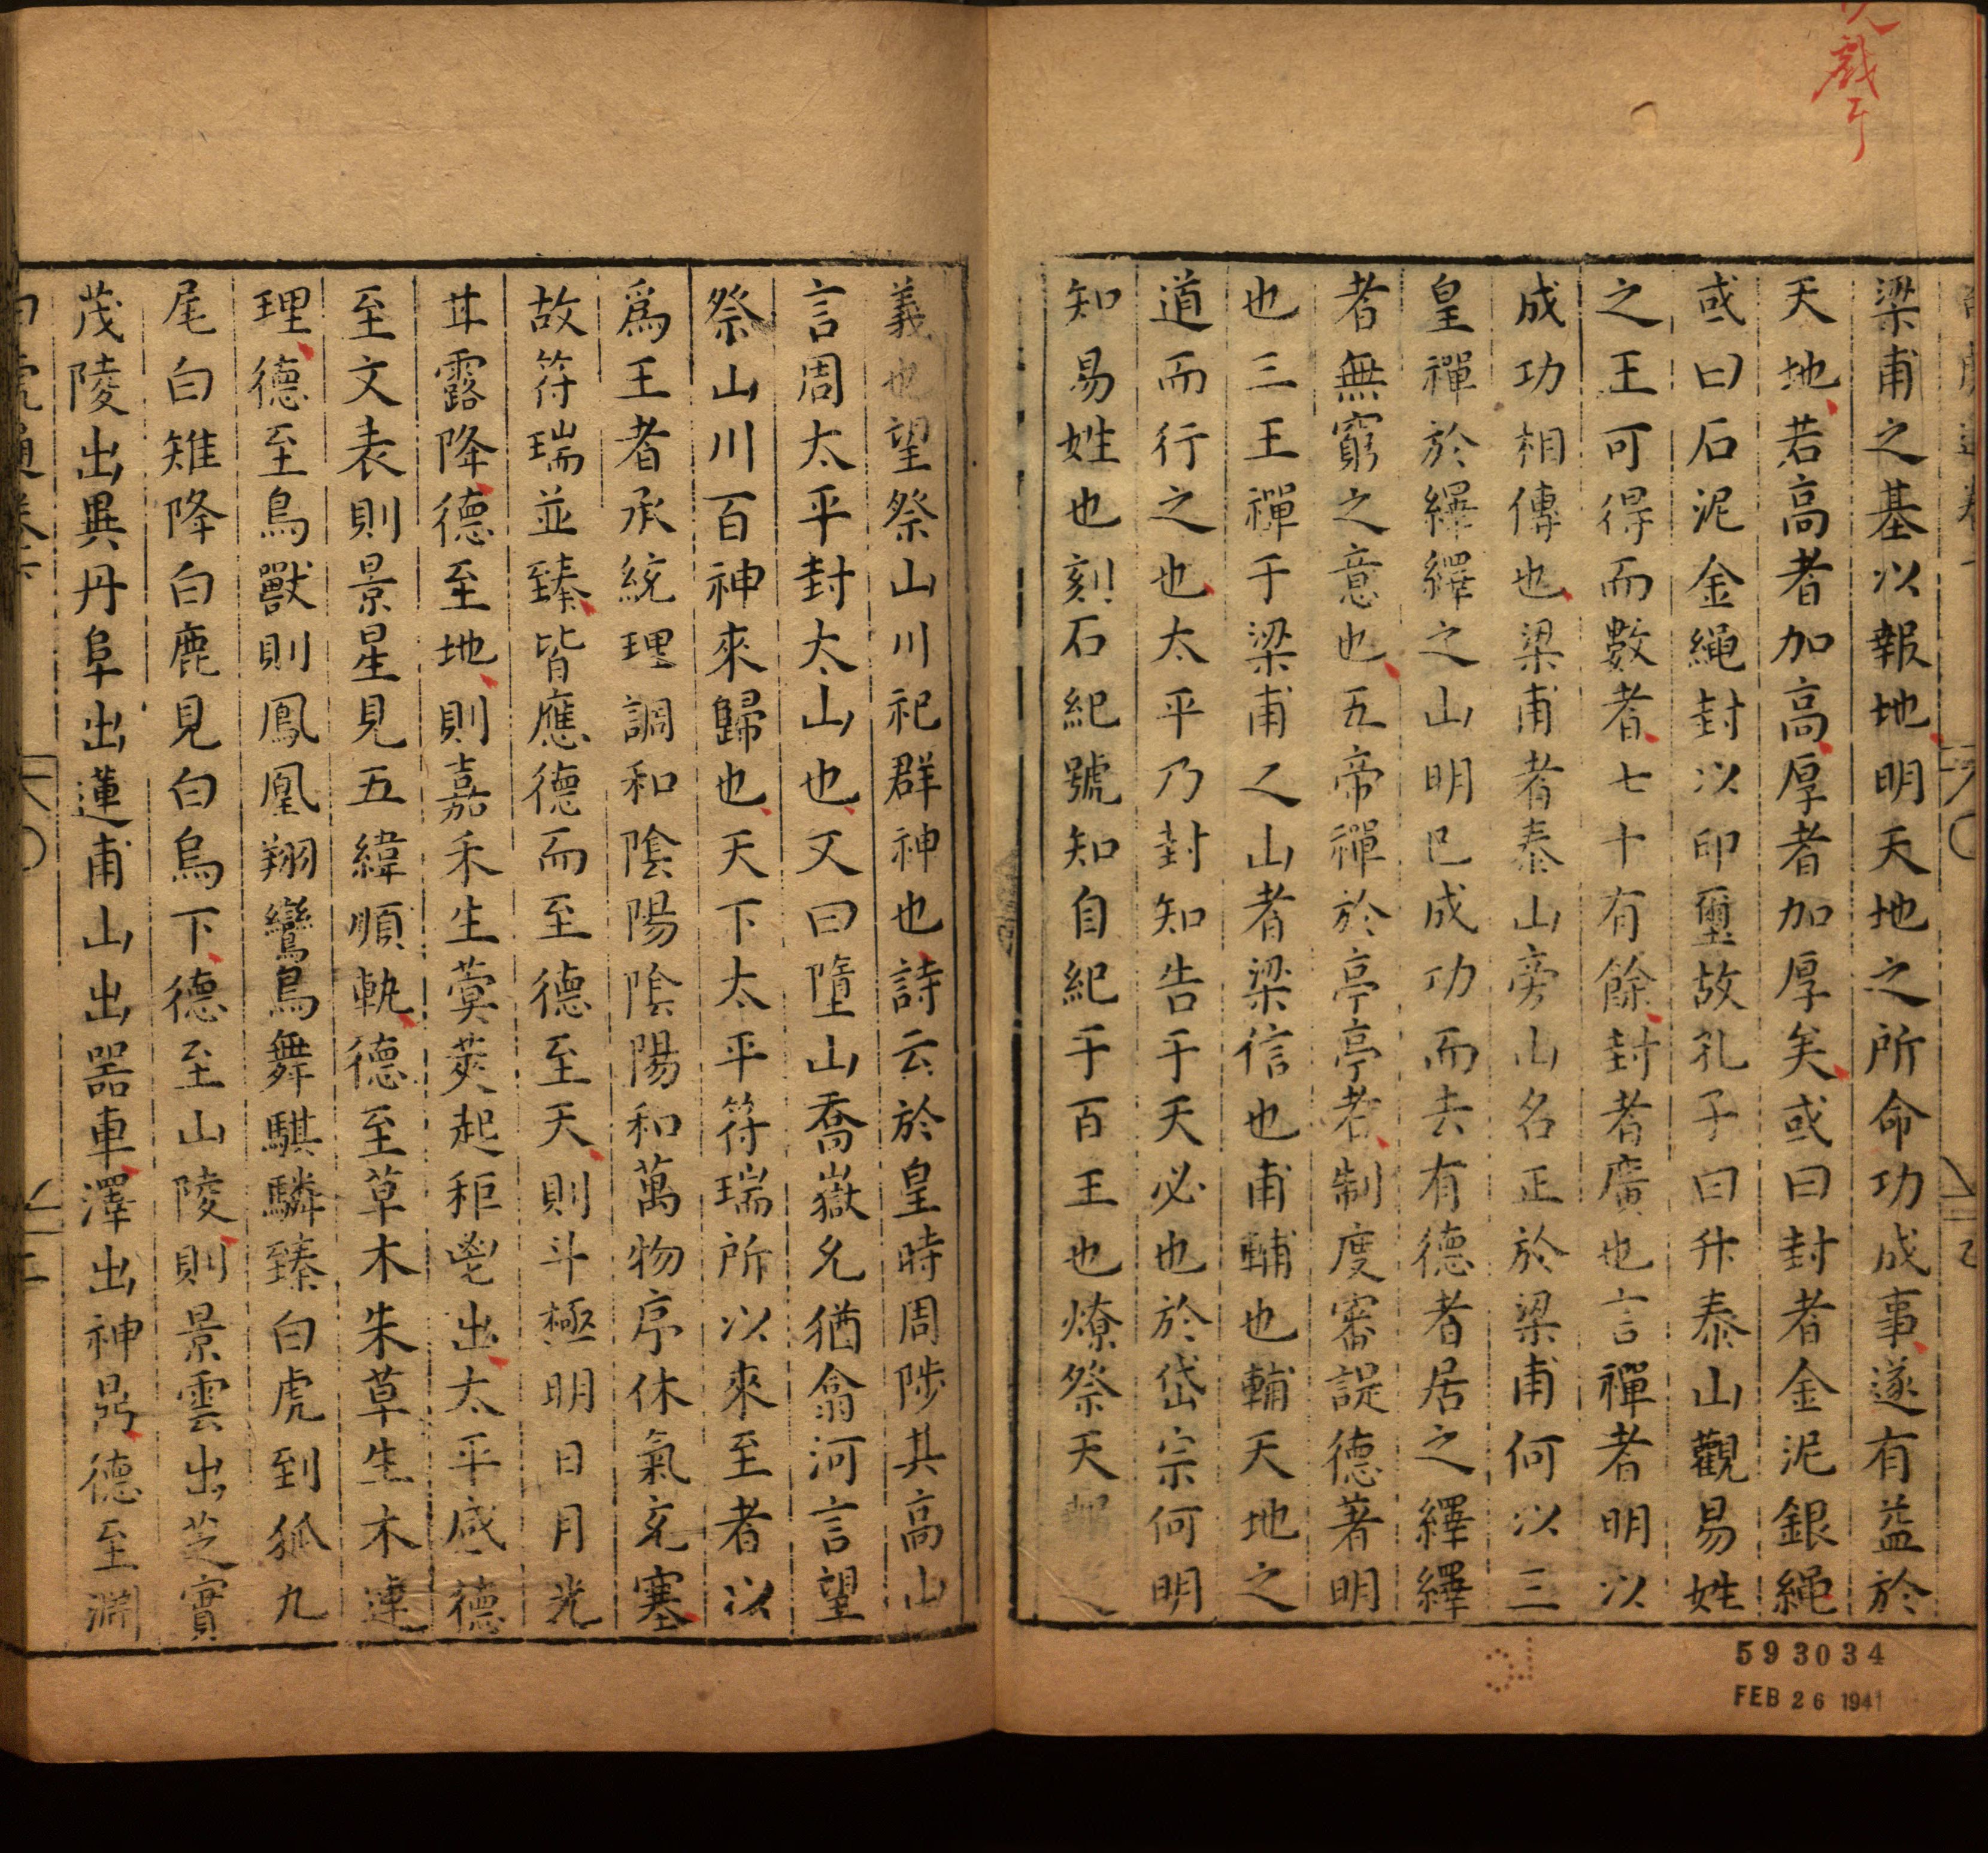 梁甫之基以報地明天地之所命功成事遂有益於
天地若高者加高厚者加厚矣或曰封者金泥銀繩
或曰石泥金繩封以印璽故孔子曰升泰山觀易姓
之王可得而數者七十有餘封者廣也言禪者明以
成功相傳也梁甫者泰山旁山名正於梁甫何以三
皇禪於繹繹之山明已成功而去有德者居之繹繹
者無窮之意也五帝禪於亭亭者制度審諟德著明
也三王禪于梁甫之山者梁信也甫輔也輔天地之
道而行之也太平乃封知告于天必也於岱宗何明
知易姓也刻石紀號知自紀于百王也燎祭天報之
義也望祭山川祀群神也詩云於皇時周陟其高山
言周太平封太山也又曰墮山喬嶽允猶翕河言望
祭山川百神來歸也天下太平符瑞所以來至者以
爲王者承統理調和陰陽陰陽和萬物序休氣充塞
故符瑞並臻皆應德而至德至天則斗極明日月光
甘露降德至地則嘉禾生蓂莢起秬鬯出太平感德
至文表則景星見五緯順軌德至草木朱草生木連
理德至鳥獸則鳳凰翔鸞鳥舞騏驎臻白虎到狐九
尾白雉降白鹿見白烏下德至山陵則景雲出芝實
茂陵出異丹阜出蓮甫山出器車澤出神鼎德至淵
593034
FEB 26 1941